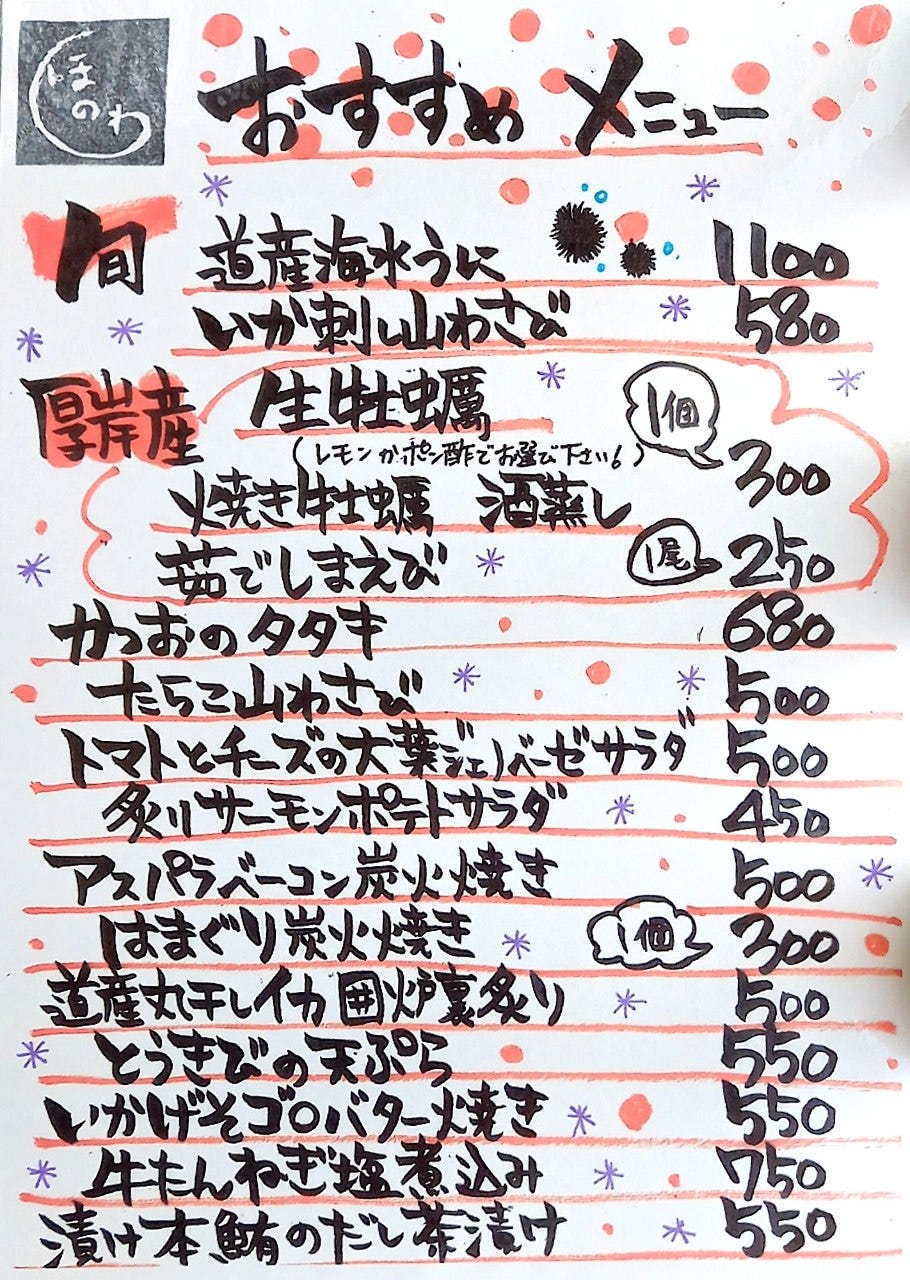 ほのわ
おすすめ メニュー
旬
道産海水うに 1100
いか刺し山わさび 580
厚岸産 生牡蠣 1個 300
(レモンかポン酢でお選び下さい!)
焼き牡蠣 酒蒸し
茹でしまえび 1尾 250
かつおのタタキ 680
たらこ山わさび 500
トマトとチーズの大葉ジェノベーゼサラダ 500
炙りサーモンポテトサラダ 450
アスパラベーコン炭火焼き 500
はまぐり炭火焼き 1個 300
道産丸干しイカ囲炉裏炙り 500
とうきびの天ぷら 550
いかげそゴロバター焼き 550
牛たんねぎ塩煮込み 750
漬け本鮪のだし茶漬け 550